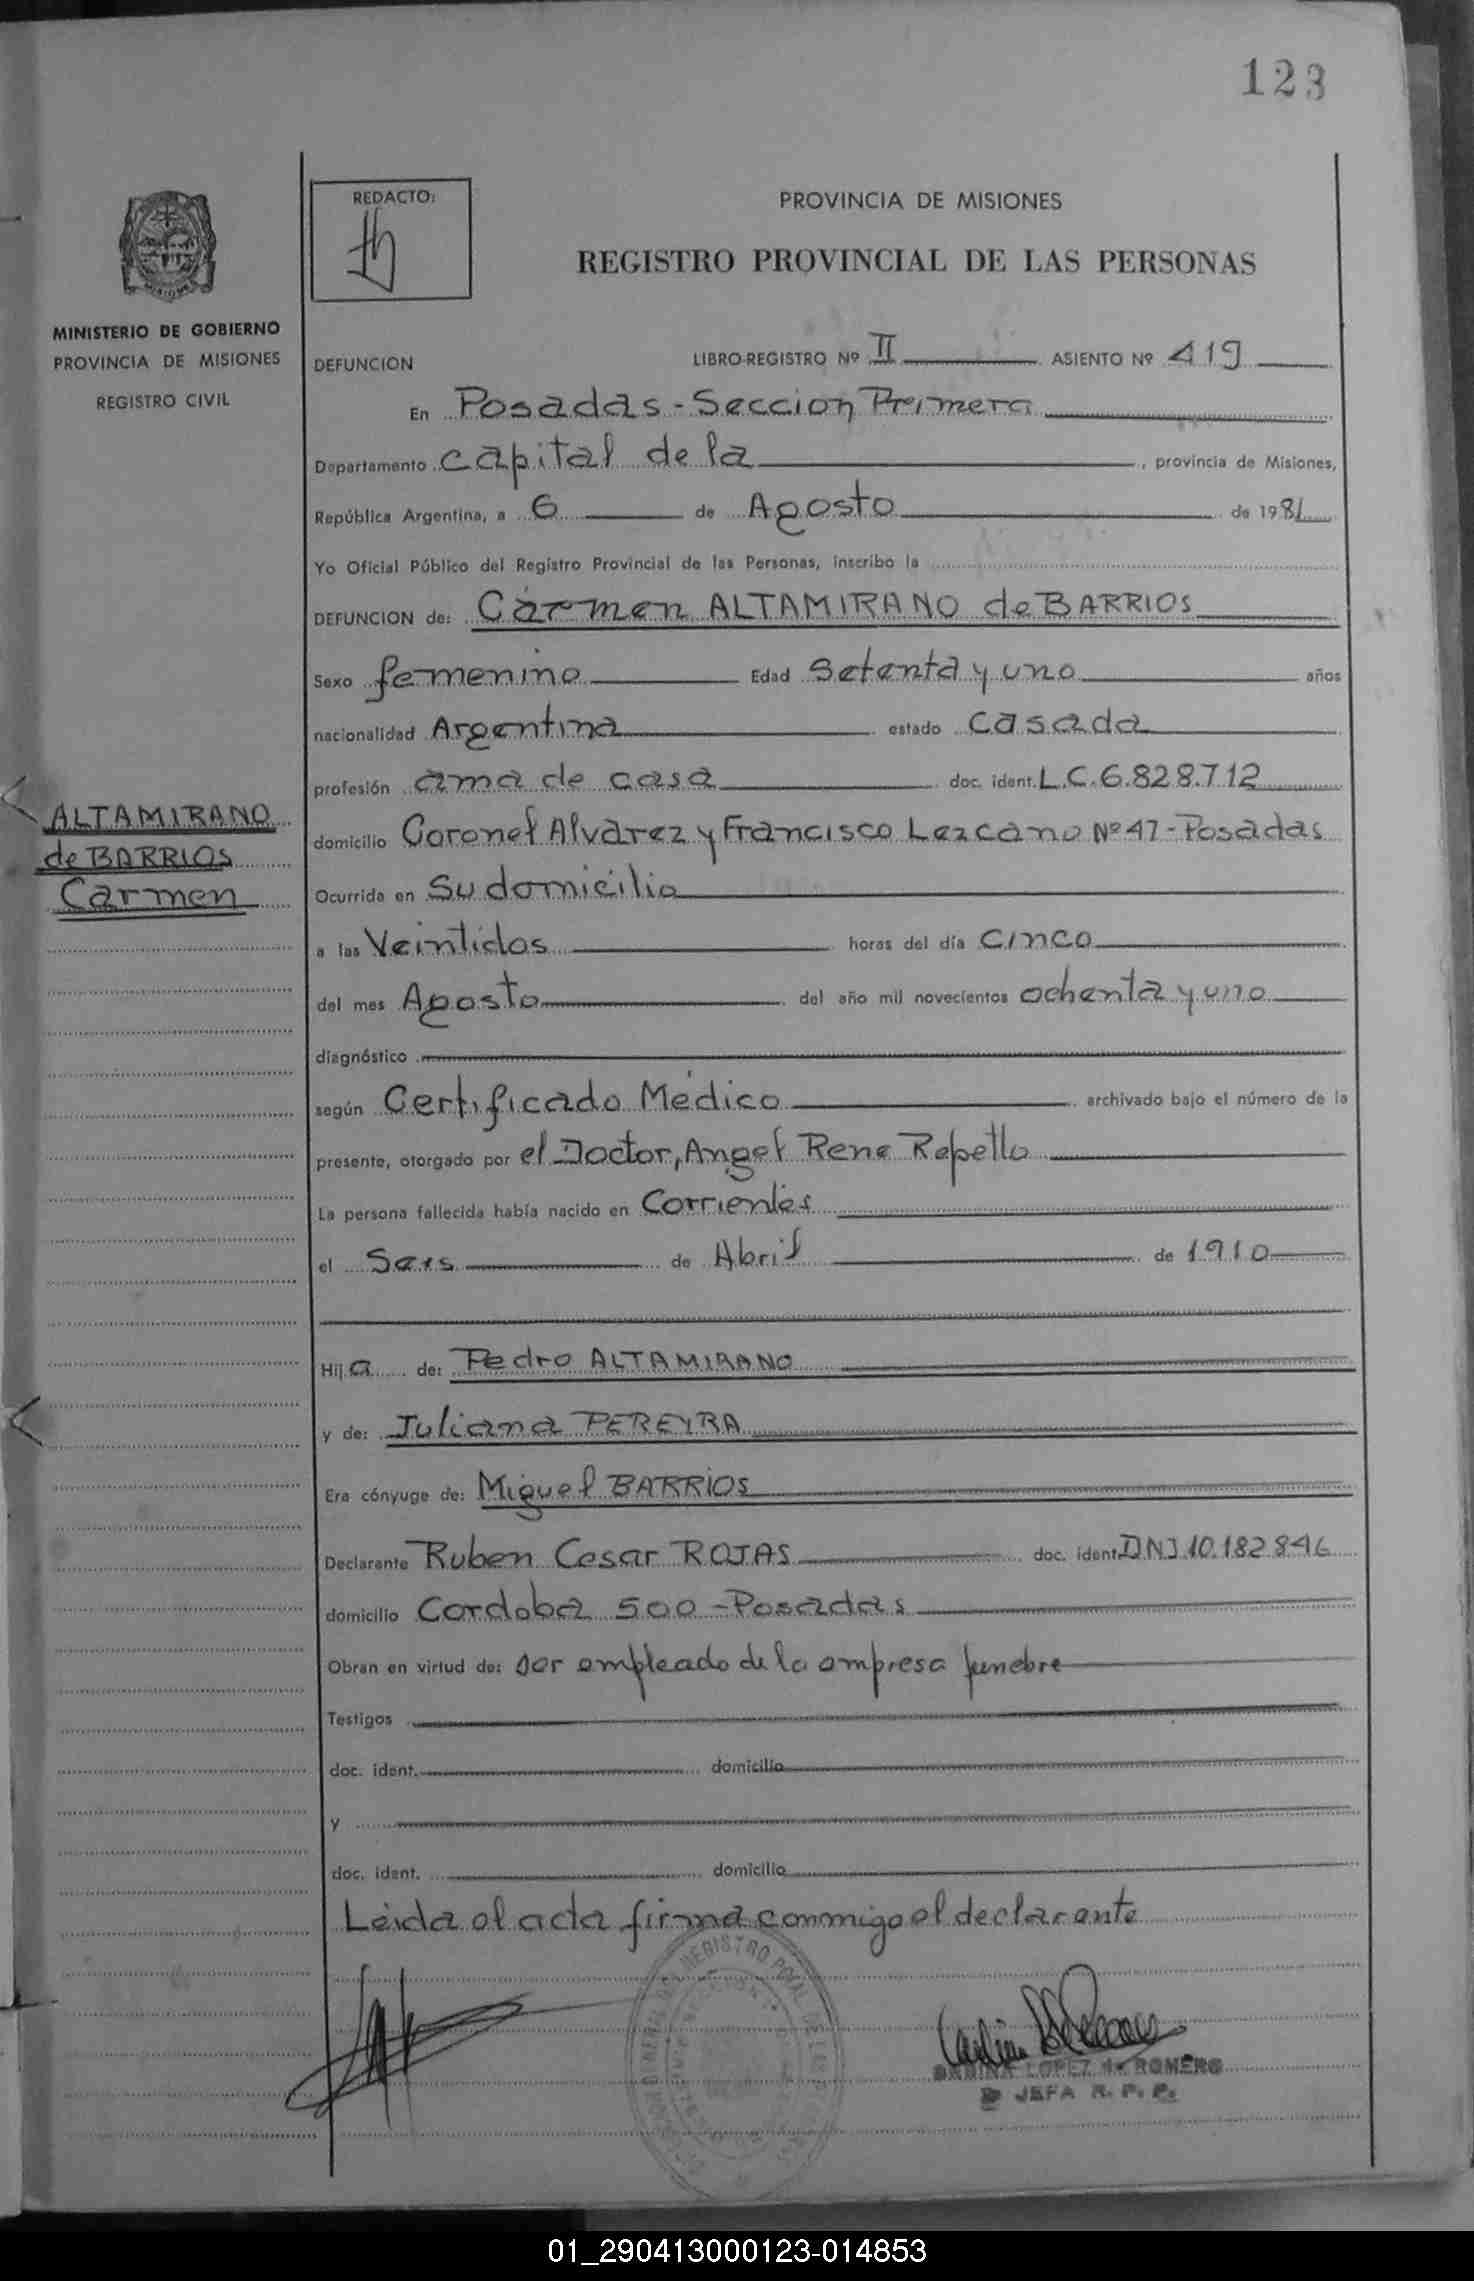 123
REDACTO:
PROVINCIA DE MISIONES
REGISTRO PROVINCIAL DE LAS PERSONAS
MINISTERIO DE GOBIERNO
PROVINCIA DE MISIONES
REGISTRO CIVIL
DEFUNCION LIBRO-REGISTRO Nº II ASIENTO Nº 419
En Posadas - Seccion Primera
Departamento Capital de la, provincia de Misiones,
República Argentina, a 6 de Agosto de 1981
Yo Oficial Público del Registro Provincial de las Personas, inscribo la
DEFUNCION de: Carmen ALTAMIRANO de BARRIOS
Sexo femenino Edad Setenta y uno años
nacionalidad Argentina estado Casada
profesión ama de casa doc. ident. L.C. 6.828.712
ALTAMIRANO
de BARRIOS
Carmen
domicilio Coronel Alvarez y Francisco Lezcano Nº 47 - Posadas
Ocurrida en Su domicilio
a las Veintidos horas del día Cinco
del mes Agosto del año mil novecientos ochenta y uno
diagnóstico
según Certificado Médico archivado bajo el número de la
presente, otorgado por el Doctor, Angel Rene Repetto
La persona fallecida había nacido en Corrientes
el Seis de Abril de 1910
Hija de: Pedro ALTAMIRANO
y de: Juliana PEREYRA
Era cónyuge de: Miguel BARRIOS
Declarante Ruben Cesar ROJAS doc. ident. DNI 10.182.846
domicilio Cordoba 500 - Posadas
Obran en virtud de: ser empleado de la empresa funebre
Testigos
doc. ident. domicilio
y
doc. ident. domicilio
Leida el acta firma conmigo el declarante
LOPEZ de ROMERO
JEFA R. P. P.
01_290413000123-014853